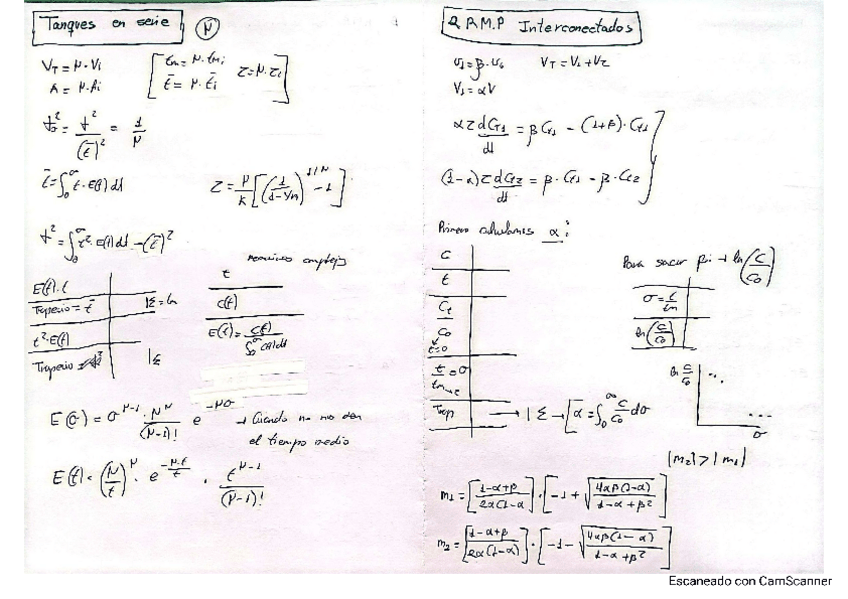 Tanques en serie (N)
V_T = N·V_i
t_m = N·t_mi
τ = N·τ_i
t̄ = N·t̄_i
σ² / (t̄)² = 1/N
t̄ = ∫₀^∞ t·E(t) dt
τ = N/k [(1/(1-X_A))^(1/N) - 1]
σ² = ∫₀^∞ t²·E(t) dt - (t̄)²
E(t)·t
Trapecio = t̄
|Σ = t_m
t²·E(t)
Trapecio
|Σ
t
C(t)
E(t) = C(t) / ∫₀^∞ C(t) dt
E(σ) = σ^(N-1) · N^N / (N-1)! e^(-Nσ) → Cuando no me den
el tiempo medio
E(t) = (N/t̄)^N · e^(-N·t/t̄) · t^(N-1) / (N-1)!
2 R.M.P Interconectados
V_T = V_1 + V_2
V_1 = αV
ατ dC_T1/dt = β C_T2 - (1+β)·C_T1
(1-α)τ dC_T2/dt = β·C_T1 - β·C_T2
Primero calculamos α:
C
t
C_t/C_0
t=0
t/t_m = σ
Trap → |Σ → | α = ∫₀^∞ C/C_0 dσ
Para sacar β: → ln(C/C_0)
σ = t/t_m
ln(C/C_0)
ln C/C_0
σ
|m_2| > |m_1|
m_1 = [1-α+β / 2α(1-α)] · [-1 + √(4αβ(1-α) / 1-α+β²)]
m_2 = [1-α+β / 2α(1-α)] · [-1 - √(4αβ(1-α) / 1-α+β²)]
Escaneado con CamScanner